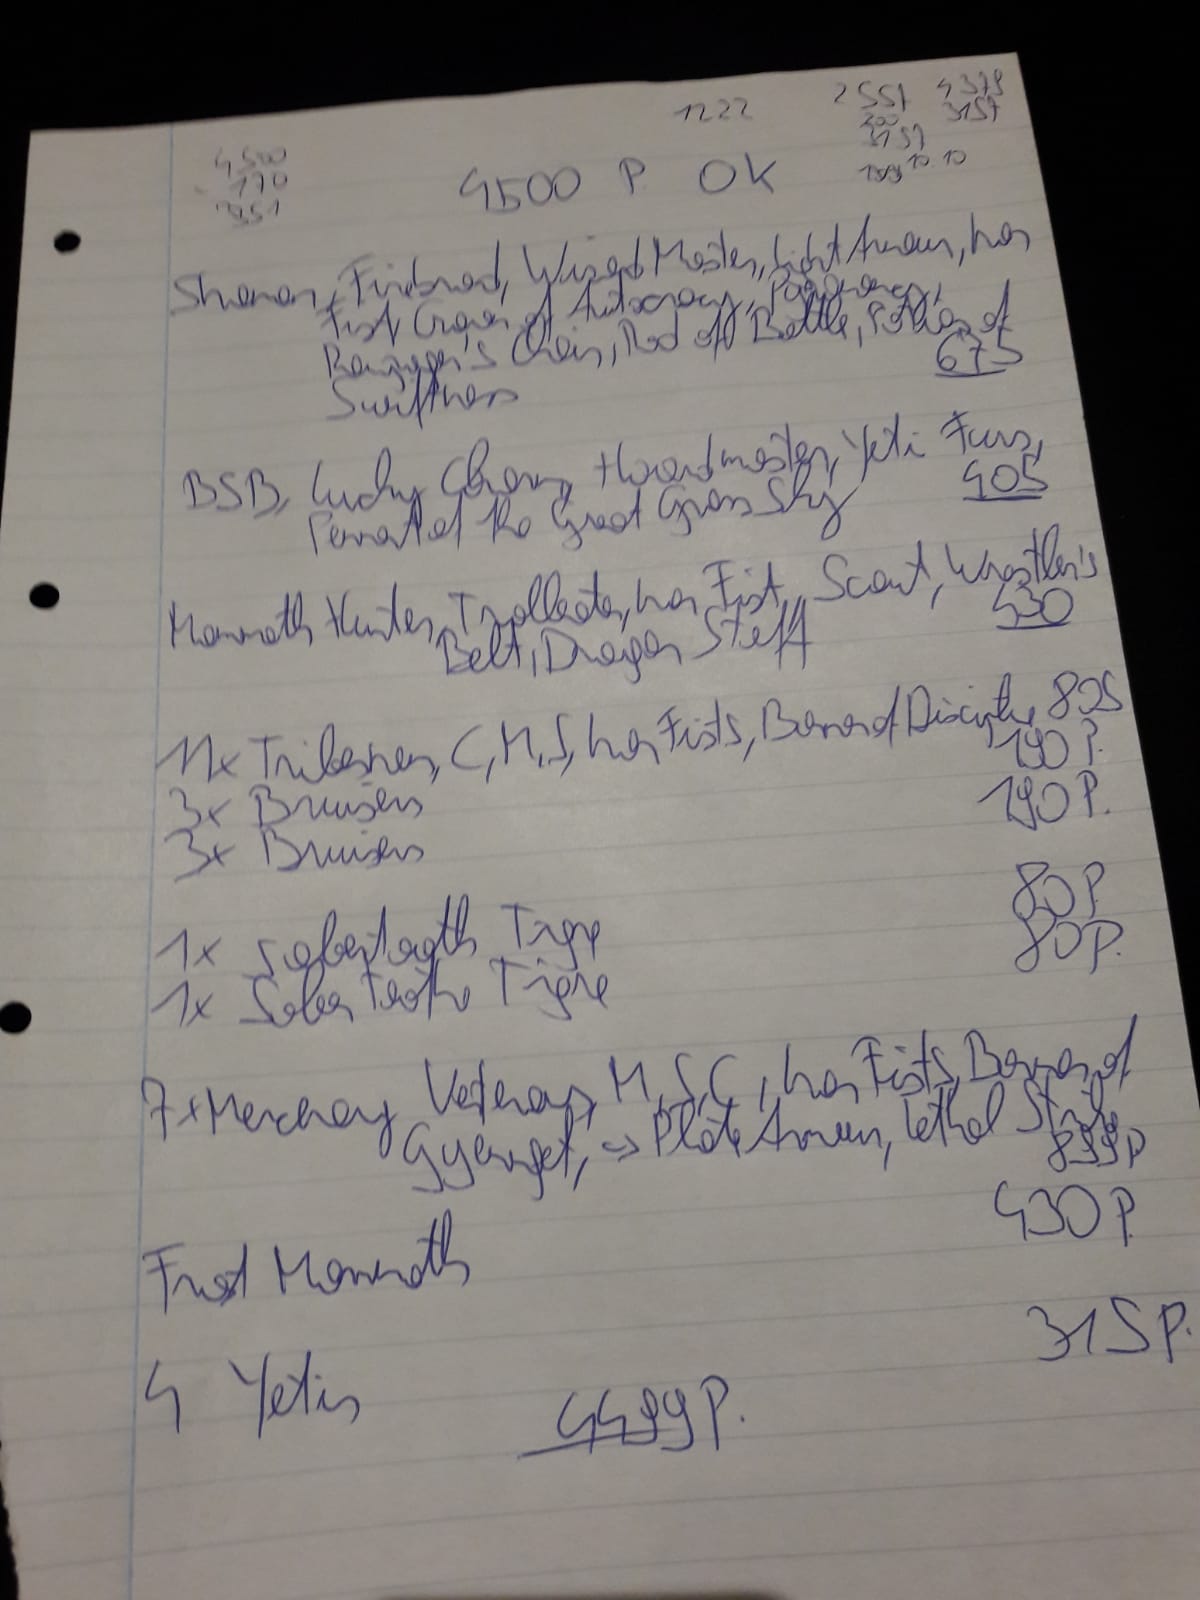 1222
2557 4379
200 3157
3157
4500
- 170
4500 P. OK
Shaman, Firebrand, Wizard Master, Light Armour, Iron
Fist, Crown of Autocracy, Pyromancy,
Rampager's Chain, Rod off Battle, Potion of
Swiftness 675
BSB, Lucky Charm, Hoardmaster, Yeti Furs,
Pennant of the Great Grass Sky 405
Mammoth Hunter, Trolleater, Iron Fist, Scout, Wrestler's
Belt, Dragon Staff 430
11x Tribesmen, C, M, S, Iron Fists, Banner of Discipline 805
3x Bruisers 190 P.
3x Bruisers 190 P.
1x Sabertooth Tigre 80 P.
1x Sabertooth Tigre 80 P.
7x Mercenary Veterans, M, S, C, Iron Fists, Banner of
Gyengget, => Plate Armour, Lethal Strike
899 P
Frost Mammoth 430 P.
4 Yetis 315 P.
4499 P.